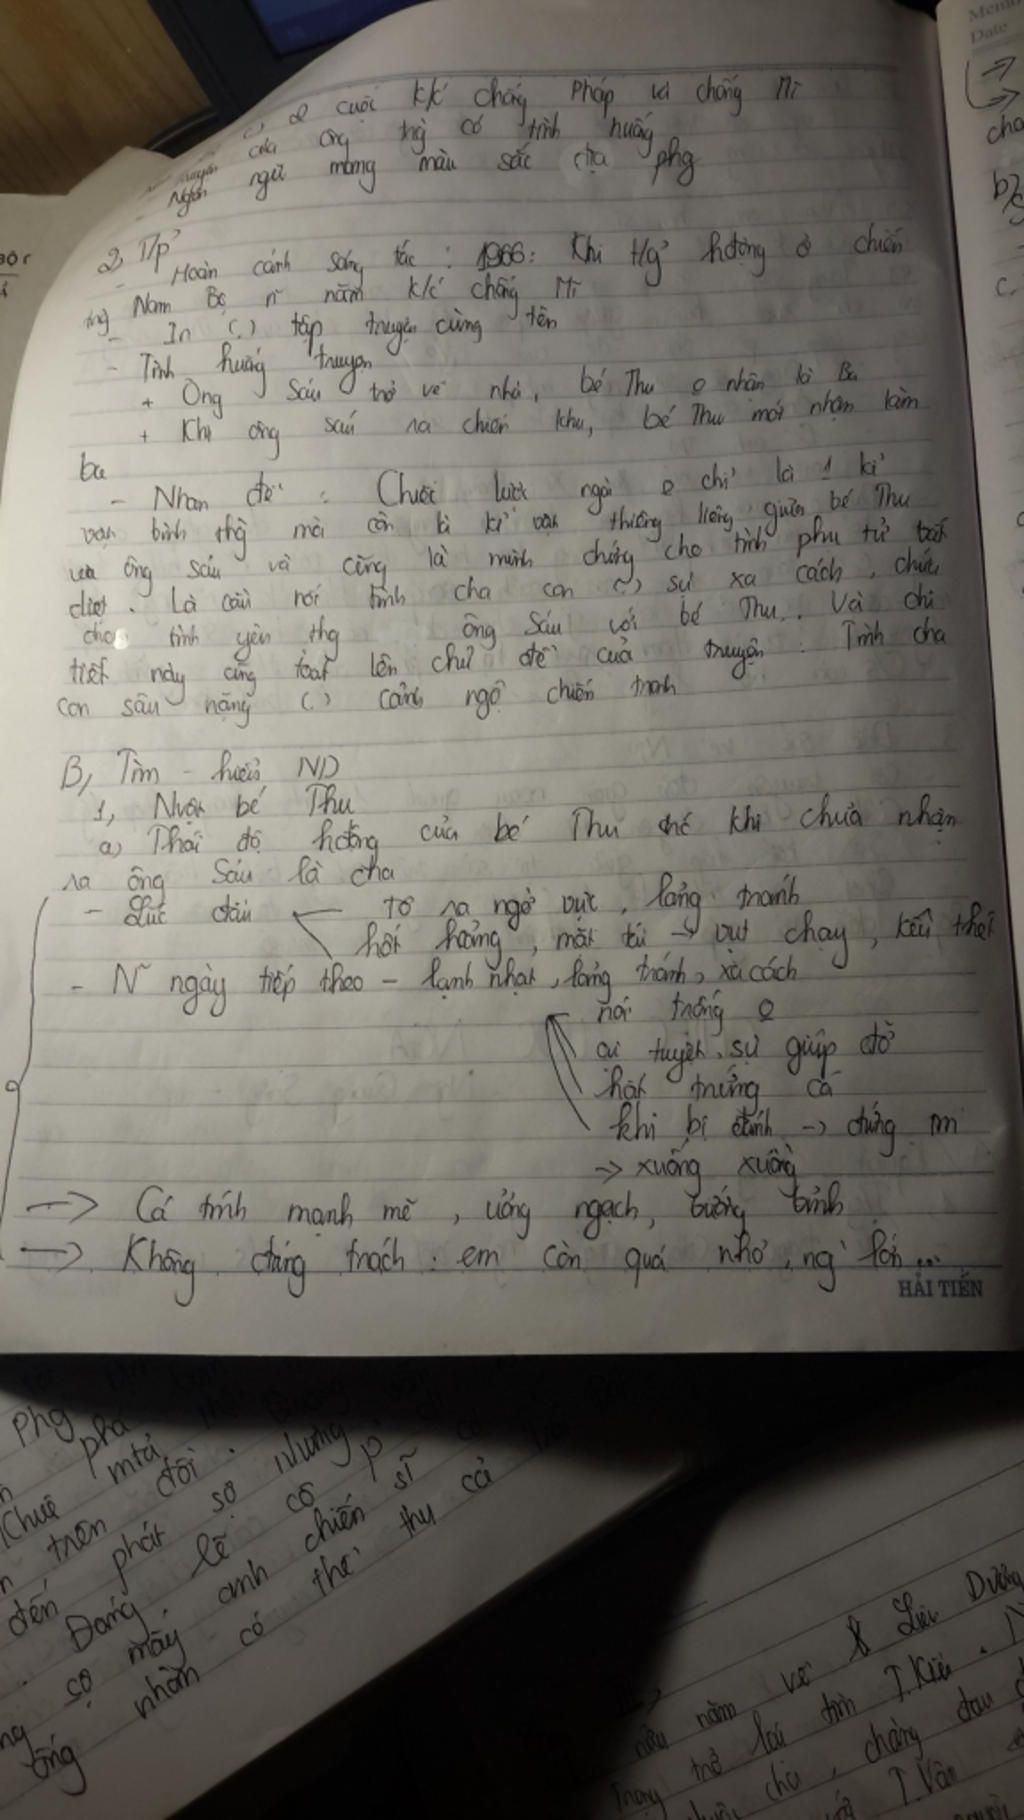 ( ) 2 cuộc k/c chống Pháp và chống Mĩ
truyện của ông thg có tình huống
- Ngôn ngữ mang màu sắc địa phg
2, T/p'
- Hoàn cảnh sáng tác : 1966: Khi t/g' hđộng ở chiến
trg Nam Bộ n~ năm k/c chống Mĩ
- In ( ) tập truyện cùng tên
- Tình huống truyện
+ Ông Sáu trở về nhà, bé Thu o nhận là Ba
+ Khi ông sáu ra chiến khu, bé Thu mới nhận làm
ba
- Nhan đề : Chiếc lược ngà o chỉ là 1 kỉ
vật bình thg mà còn là kỉ vật thiêng liêng giữa bé Thu
và ông sáu và cũng là minh chứng cho tình phụ tử bất
diệt. Là cầu nối tình cha con ( ) sự xa cách, chứa
cho tình yêu thg ông Sáu với bé Thu. Và chi
tiết này cũng toát lên chủ đề của truyện : Tình cha
con sâu nặng ( ) cảnh ngộ chiến tranh
B, Tìm - hiểu ND
1, Nvật bé Thu
a) Thái độ hđộng của bé Thu trc khi chưa nhận
ra ông Sáu là cha
- Lúc đầu tỏ ra ngờ vực, lảng tránh
hốt hoảng, mặt tái -> vụt chạy, kêu thét
- N~ ngày tiếp theo - lạnh nhạt, lảng tránh, xa cách
nói trống o
cự tuyệt sự giúp đỡ
hất trứng cá
khi bị đánh -> đứng im
-> xuống xuồng
-> Cá tính mạnh mẽ, ương ngạch, bướng bỉnh
-> Không đáng trách : em còn quá nhỏ, ng' lớn...
HẢI TIẾN
Memo
Date
cha
b)
c.
phg
phá
mtả
trên đôi. nhưng
đến phát sợ có
Đang lẽ chiến sĩ
sợ mấy, anh thu cả
ông nhòm có thể
năm về Liêu Dương
Trọng trở lại tìm T.Kiều.
chàng đau
T.Vân